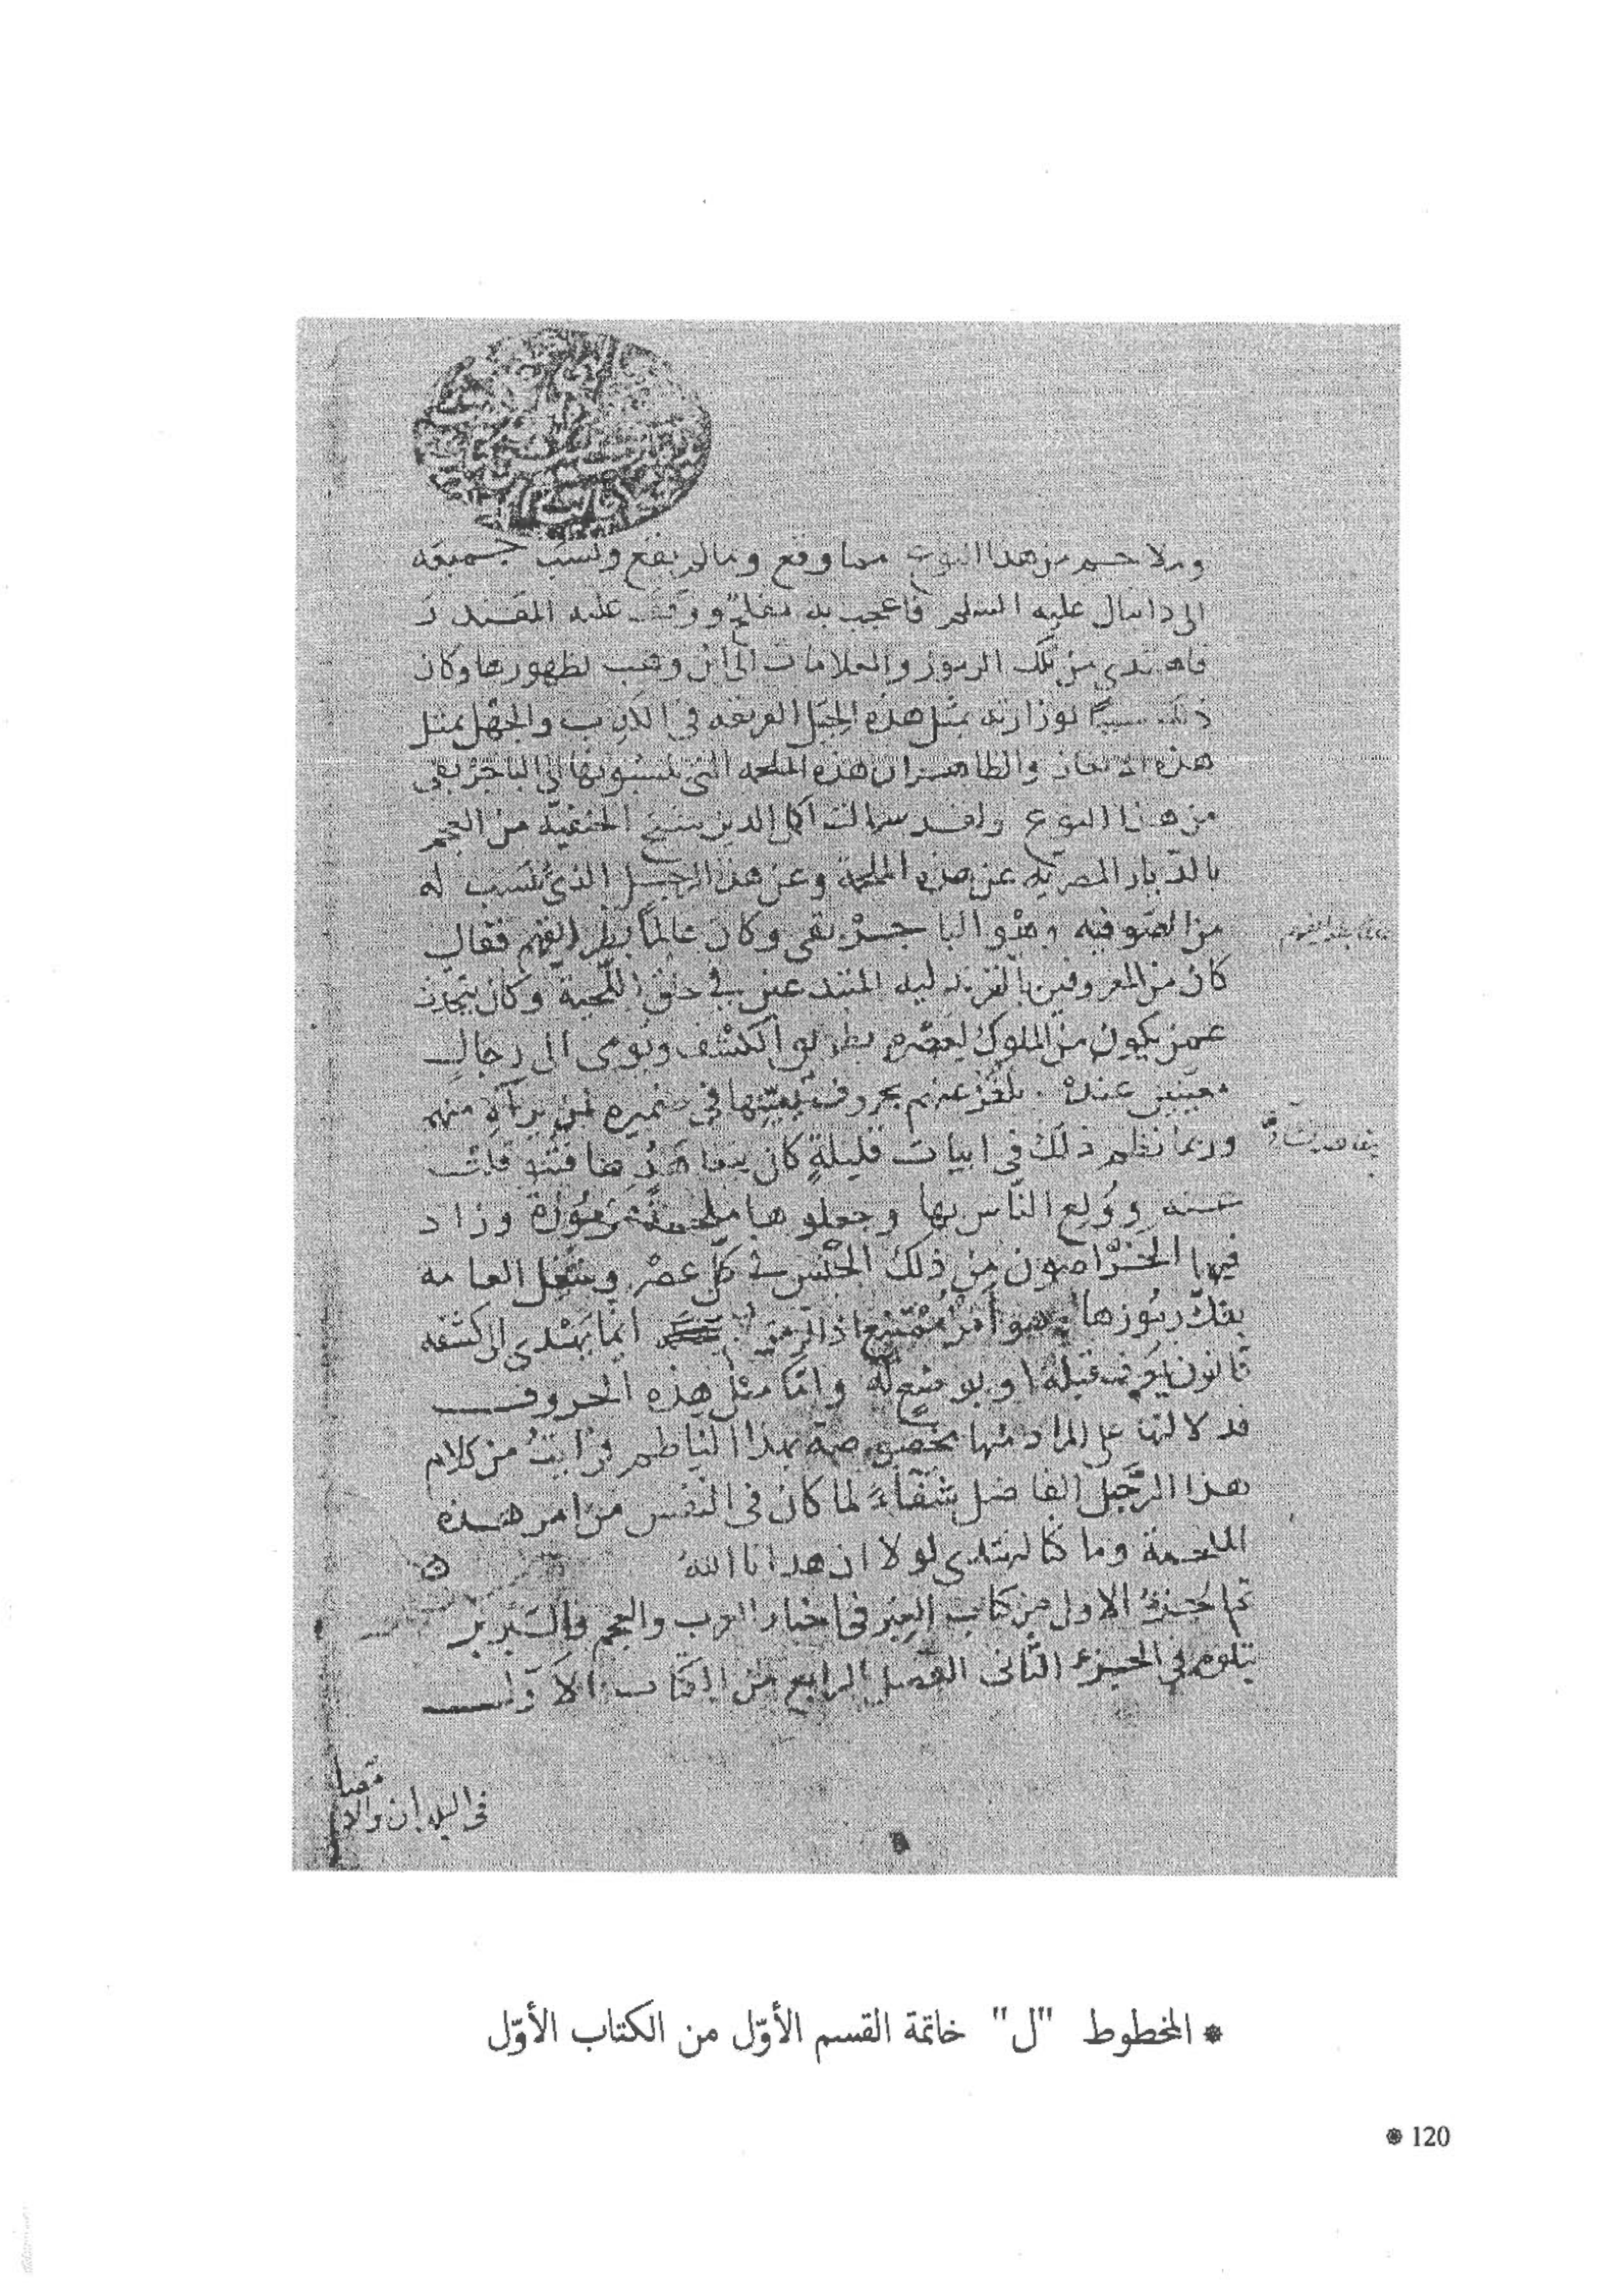 وملاحم من هذا النوع مما وقع ومما لم يقع ونسب جميعه
الى دانيال عليه السلم فاعجب به مفلح ووقف عليه المقتدر
فاهتدى من تلك الرموز والعلامات الى ابن وهب لظهورها وكان
ذلك سببًا لوزارته بمثل هذه الحيل العريقه في الكذب والجهل بمثل
هذه الالغاز والظاهر ان هذه الملحمه التى ينسبونها الى الباجربقى
من هذا النوع ولقد سالت اكمل الدين شيخ الحنفيّة من العجم
بالديار المصريّة عن هذه الملحمة وعن هذا الرجل الذى تنسب له
من الصوفيه وهو الباجربقى وكان عالمًا فقال
كان من المعروفين بالقرندليه المبتدعين في حلق اللّحية وكان يتحدث
عمن يكون من الملوك لعصره بطريق الكشف ويومى الى رجال
معينين عنده يلغز عنهم بحروف يعيّنها في ضميره لمن يراه منهم
وربما نظم ذلك في ابيات قليلةٍ كان يتعاهدها فتنوقلت
عنه وولع الناس بها وجعلوها ملحمة مرموزة وزاد
فيها الخرّاصون من ذلك الجنس في كلّ عصر وشغل العامه
بفكّ رموزها وهو أمر ممتنع اذ الرمز انما يهتدى الى كشفه
قانون يعرف قبله او يوضع له وامّا مثل هذه الحروف
فدلالتها على المراد منها مخصوصة بهذا الناظم فرايت من كلام
هذا الرّجل الفاضل شفاء لما كان في النفس من امر هذه
الملحمة وما كنا لنهتدى لولا ان هدانا الله
الاول من كتاب العبر في اخبار العرب والعجم والبربر
يتلوه في الجزء الثانى الفصل الرابع من الكتاب الاول
في البلدان والا
* المخطوط "ل" خاتمة القسم الأوّل من الكتاب الأوّل
120